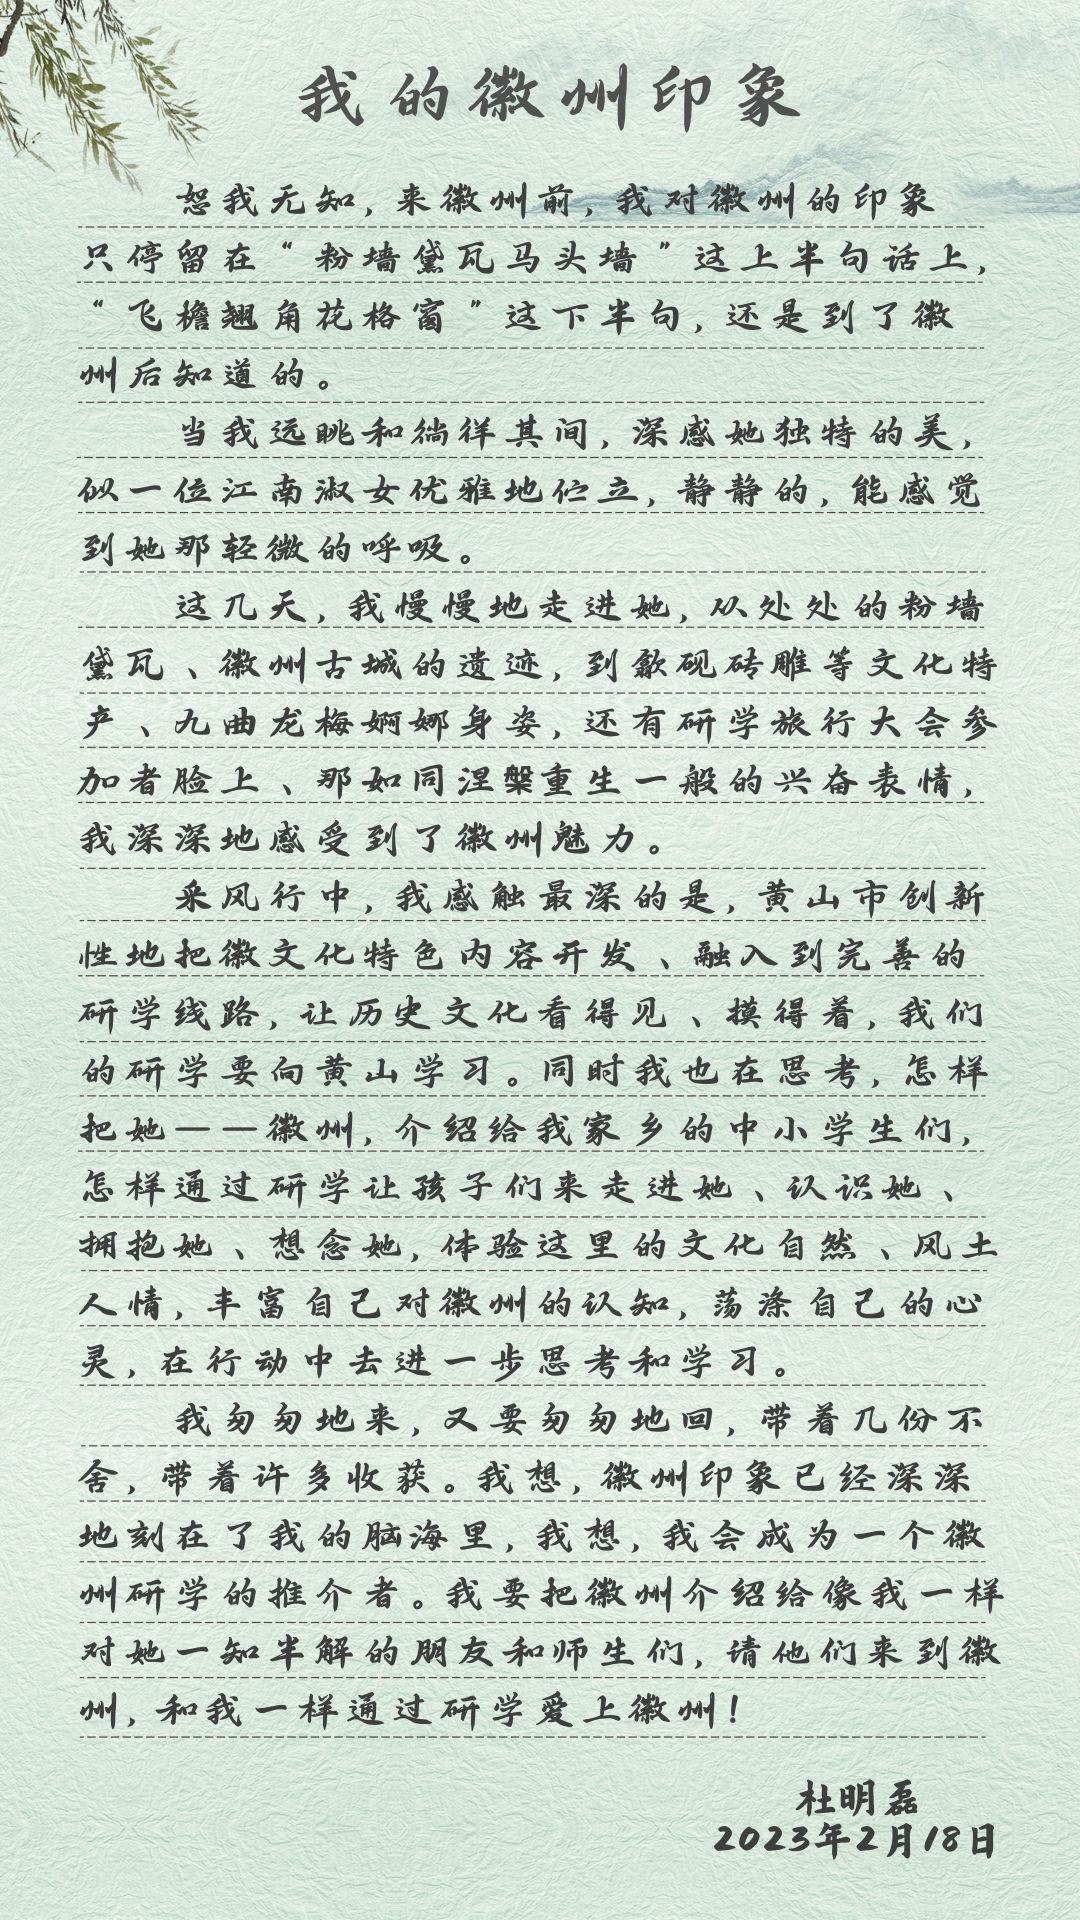 我的徽州印象
恕我无知，来徽州前，我对徽州的印象
只停留在“粉墙黛瓦马头墙”这上半句话上，
“飞檐翘角花格窗”这下半句，还是到了徽
州后知道的。
当我远眺和徜徉其间，深感她独特的美，
似一位江南淑女优雅地伫立，静静的，能感觉
到她那轻微的呼吸。
这几天，我慢慢地走进她，从处处的粉墙
黛瓦、徽州古城的遗迹，到歙砚砖雕等文化特
产、九曲龙梅婀娜身姿，还有研学旅行大会参
加者脸上、那如同涅槃重生一般的兴奋表情，
我深深地感受到了徽州魅力。
采风行中，我感触最深的是，黄山市创新
性地把徽文化特色内容开发、融入到完善的
研学线路，让历史文化看得见、摸得着，我们
的研学要向黄山学习。同时我也在思考，怎样
把她——徽州，介绍给我家乡的中小学生们，
怎样通过研学让孩子们来走进她、认识她、
拥抱她、想念她，体验这里的文化自然、风土
人情，丰富自己对徽州的认知，荡涤自己的心
灵，在行动中去进一步思考和学习。
我匆匆地来，又要匆匆地回，带着几份不
舍，带着许多收获。我想，徽州印象已经深深
地刻在了我的脑海里，我想，我会成为一个徽
州研学的推介者。我要把徽州介绍给像我一样
对她一知半解的朋友和师生们，请他们来到徽
州，和我一样通过研学爱上徽州！
杜明磊
2023年2月18日